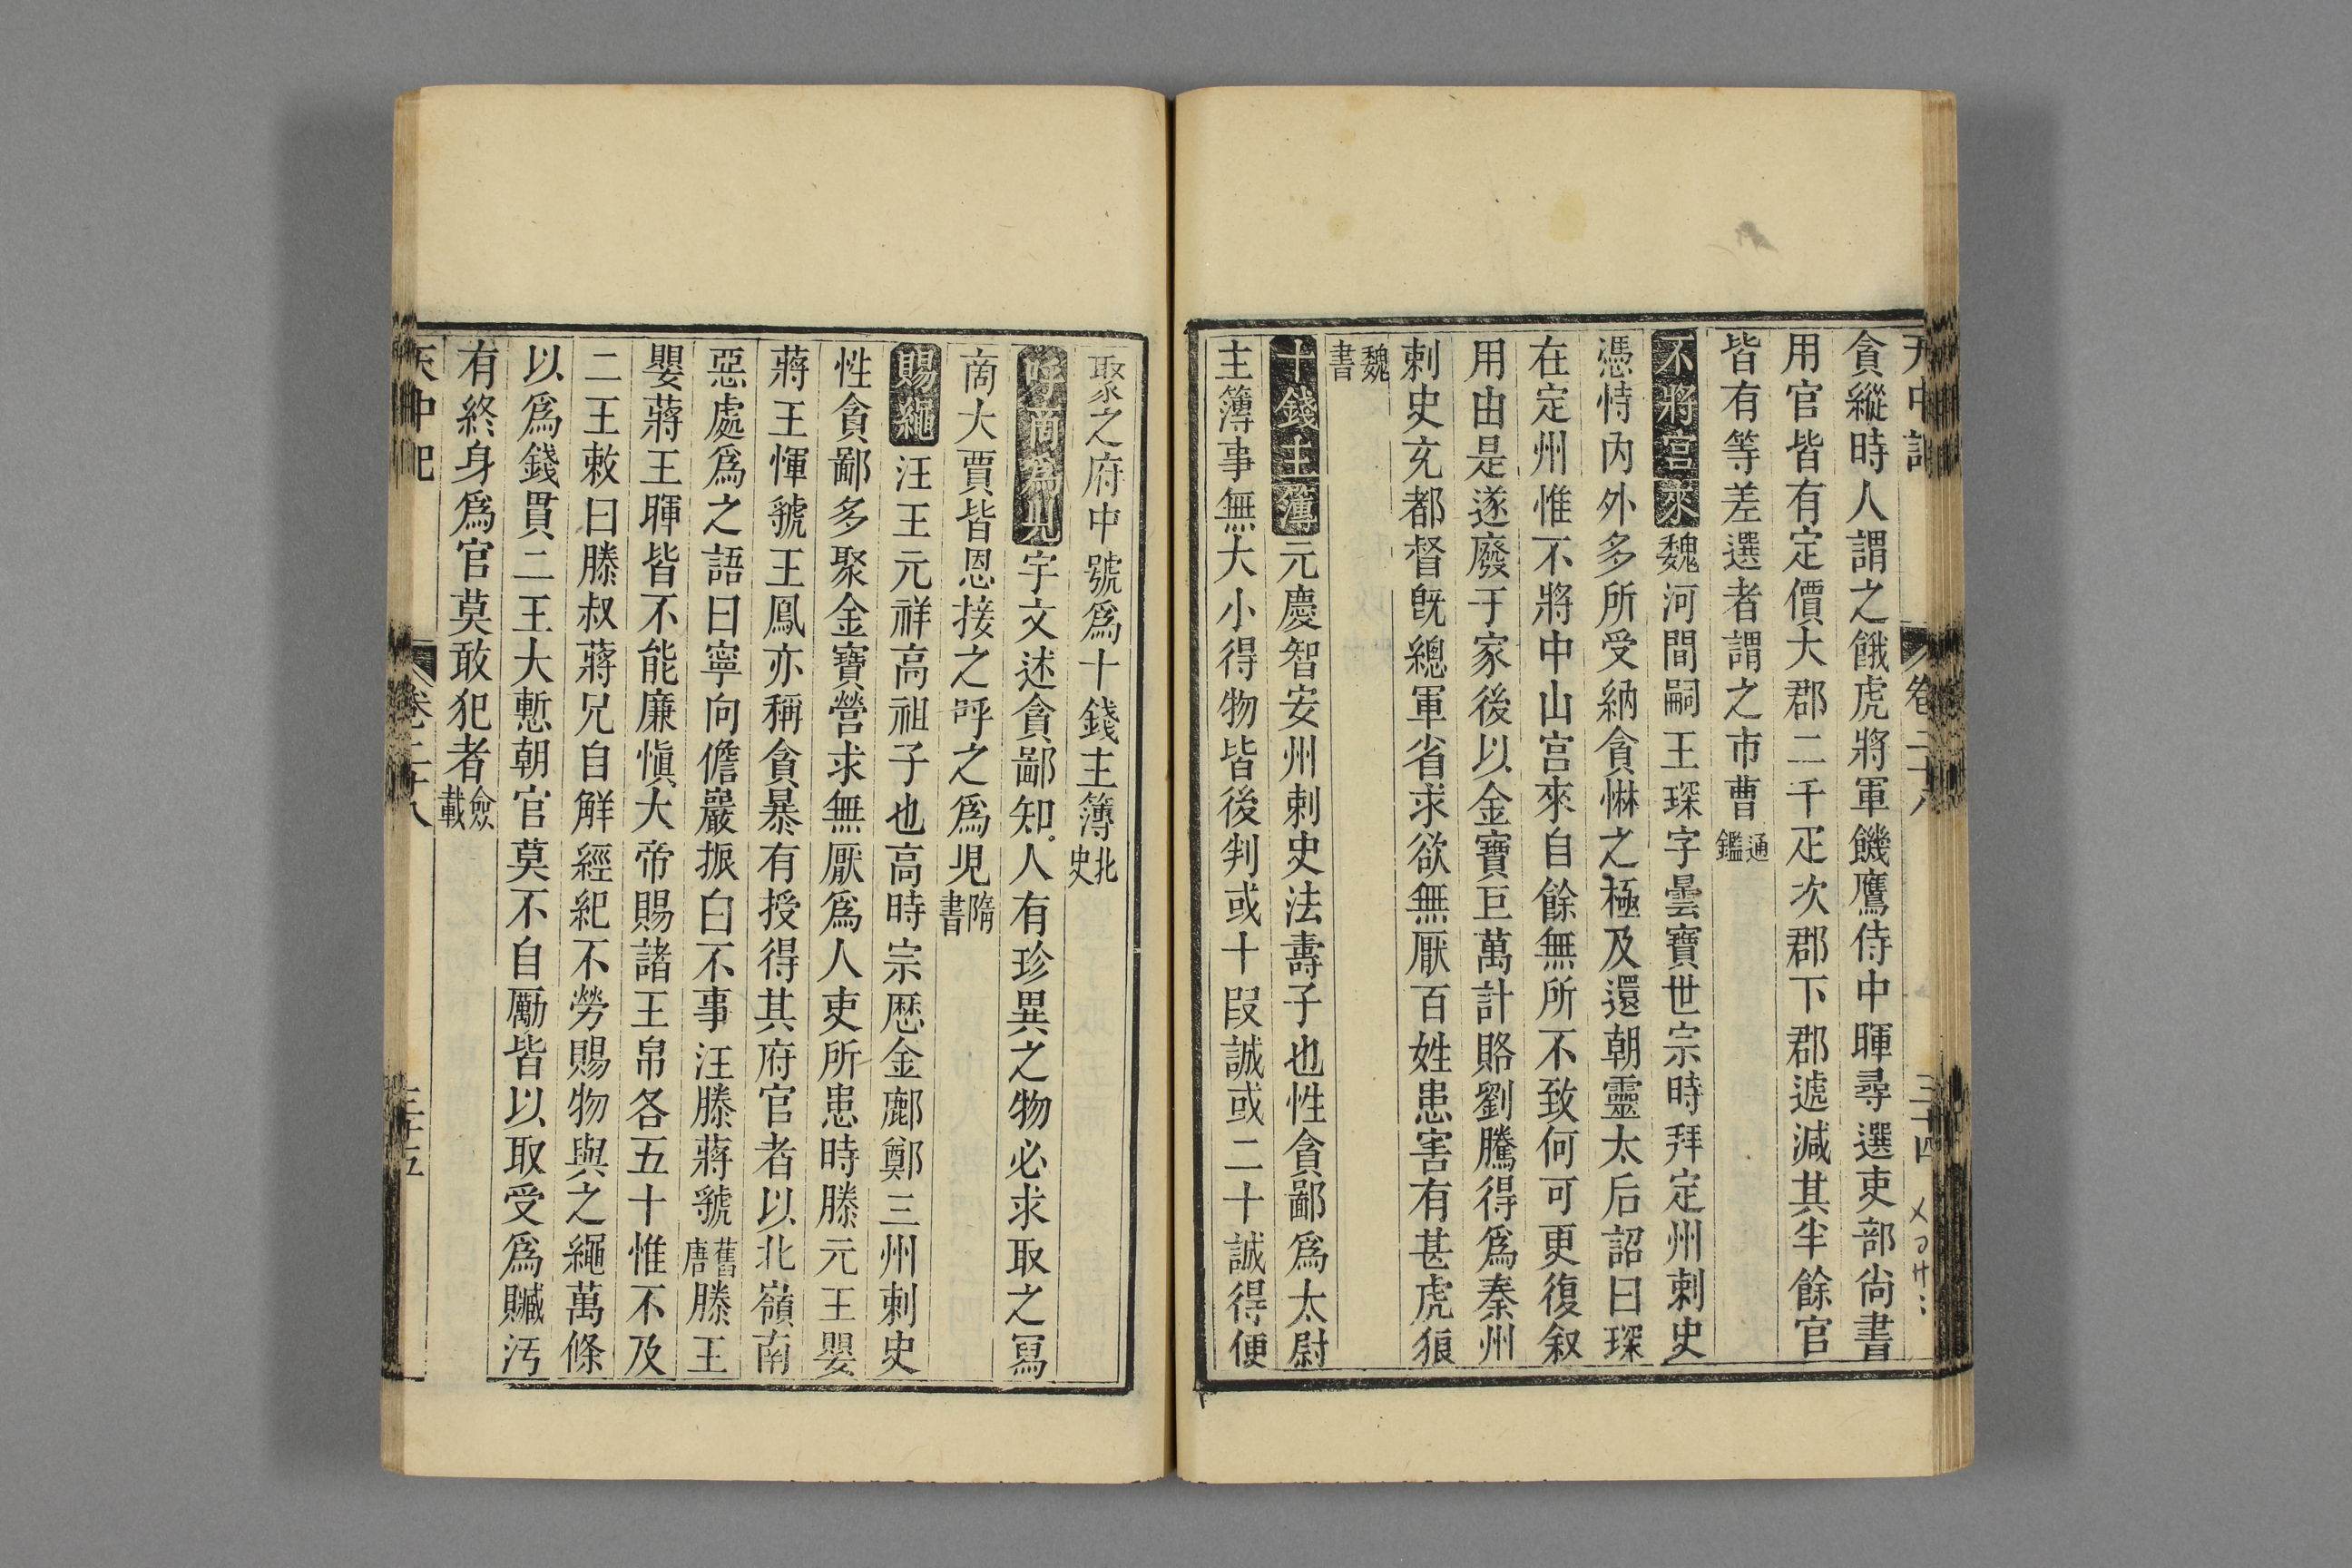 貪縱時人謂之餓虎將軍饑鷹侍中暉尋選吏部尚書
用官皆有定價大郡二千疋次郡下郡遞減其半餘官
皆有等差選者謂之市曹通鑑
不將宮來魏河間嗣王琛字曇寶世宗時拜定州刺史
憑恃內外多所受納貪惏之極及還朝靈太后詔曰琛
在定州惟不將中山宮來自餘無所不致何可更復叙
用由是遂廢于家後以金寶巨萬計賂劉騰得爲秦州
刺史兗都督旣總軍省求欲無厭百姓患害有甚虎狼
魏書
十錢主簿元慶智安州刺史法壽子也性貪鄙爲太尉
主簿事無大小得物皆後判或十叚誠或二十誠得便
聚之府中號爲十錢主簿北史
呼商爲兒宇文述貪鄙知人有珍異之物必求取之冨
商大賈皆恩接之呼之爲児隋書
賜繩汪王元祥高祖子也高時宗歷金鄜鄭三州刺史
性貪鄙多聚金寶營求無厭爲人吏所患時滕元王嬰
蔣王惲虢王鳳亦稱貪暴有授得其府官者以北嶺南
惡處爲之語曰寧向儋巖振白不事汪滕蔣虢舊唐滕王
嬰蔣王暉皆不能廉愼大帝賜諸王帛各五十惟不及
二王敕曰滕叔蔣兄自解經紀不勞賜物與之繩萬條
以爲錢貫二王大慙朝官莫不自厲皆以取受爲贓汚
有終身爲官莫敢犯者僉載